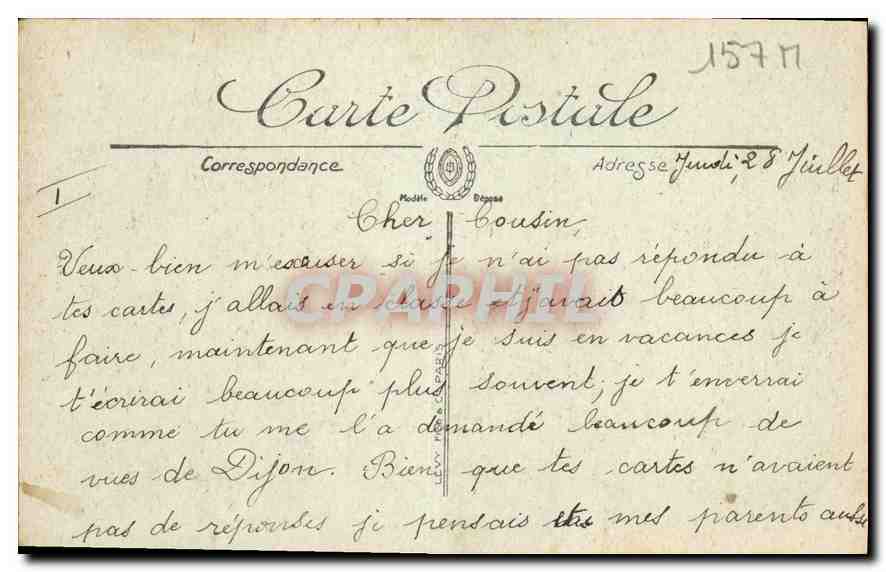 157M
Carte Postale
Correspondance
Adresse Jeudi, 28 Juillet
Modèle Déposé
I
Cher Cousin,
Veux-bien m'excuser si je n'ai pas répondu à
tes cartes, j'allais en classe et j'avait beaucoup à
faire, maintenant que je suis en vacances je
t'écrirai beaucoup plus souvent; je t'enverrai
comme tu me l'a demandé beaucoup de
vues de Dijon. Bien que tes cartes n'avaient
pas de réponses je pensais mes parents aussi
CPARHIL
LEVY FILS & Cie PARIS